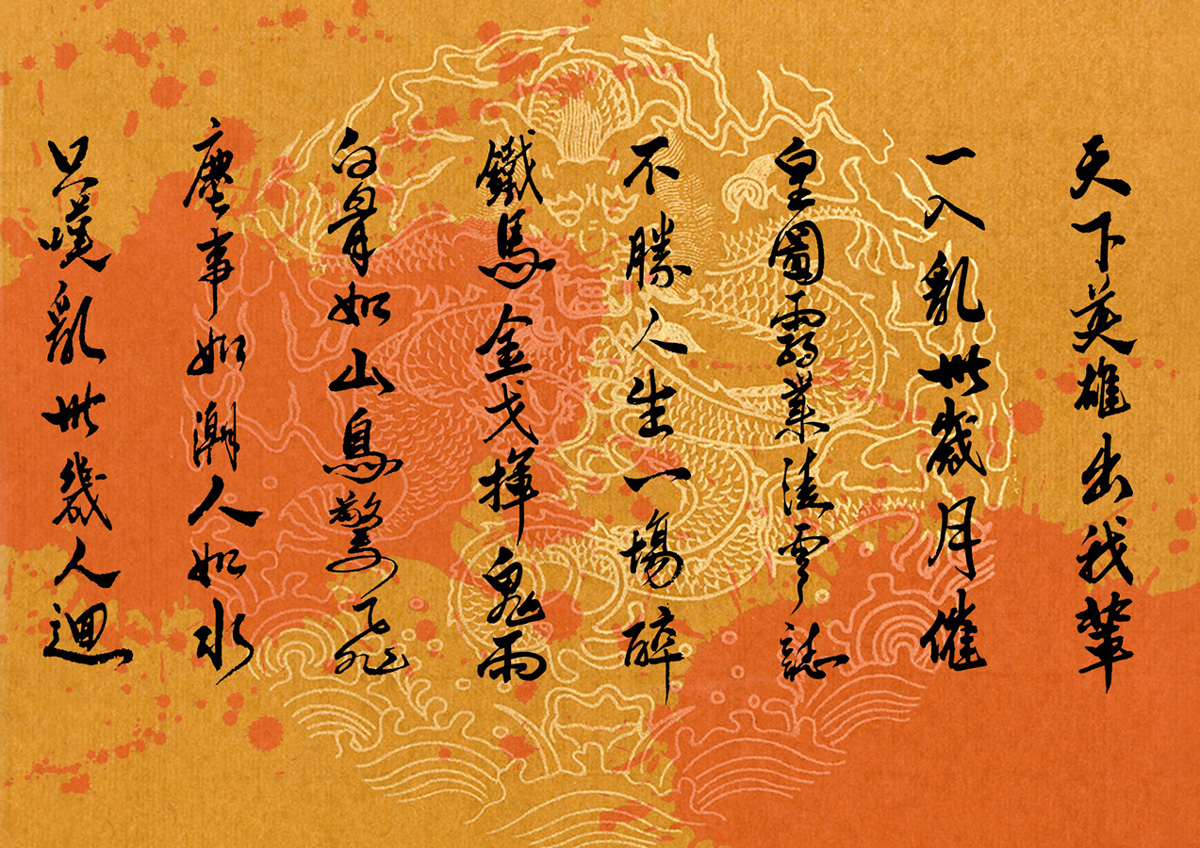 天下英雄出我輩
一入亂世歲月催
皇圖霸業淩雲誌
不勝人生一場醉
鐵馬金戈揮鬼雨
白骨如山鳥驚飛
塵事如潮人如水
只嘆亂世幾人迴